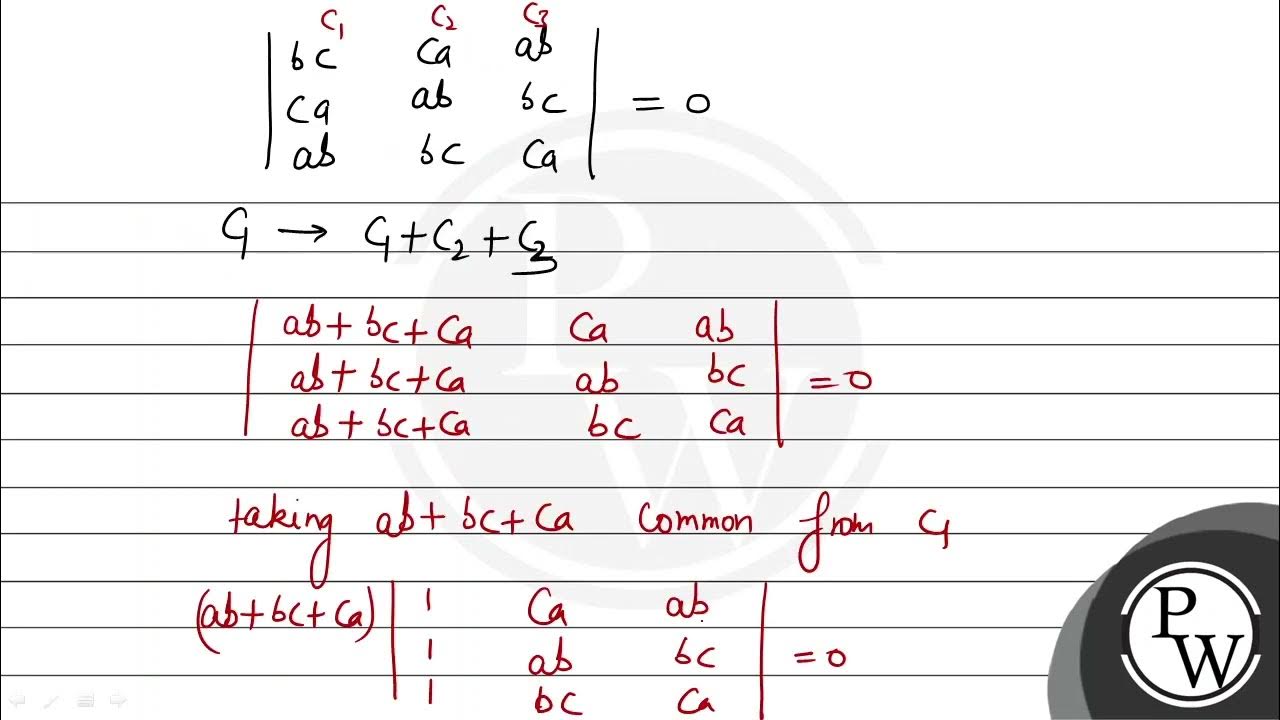 C₁ C₂ C₃
| bc ca ab |
| ca ab bc | = 0
| ab bc ca |
C₁ → C₁ + C₂ + C₃
| ab + bc + ca ca ab |
| ab + bc + ca ab bc | = 0
| ab + bc + ca bc ca |
taking ab + bc + ca common from C₁
(ab + bc + ca) | 1 ca ab |
| 1 ab bc | = 0
| 1 bc ca |
PW
PW